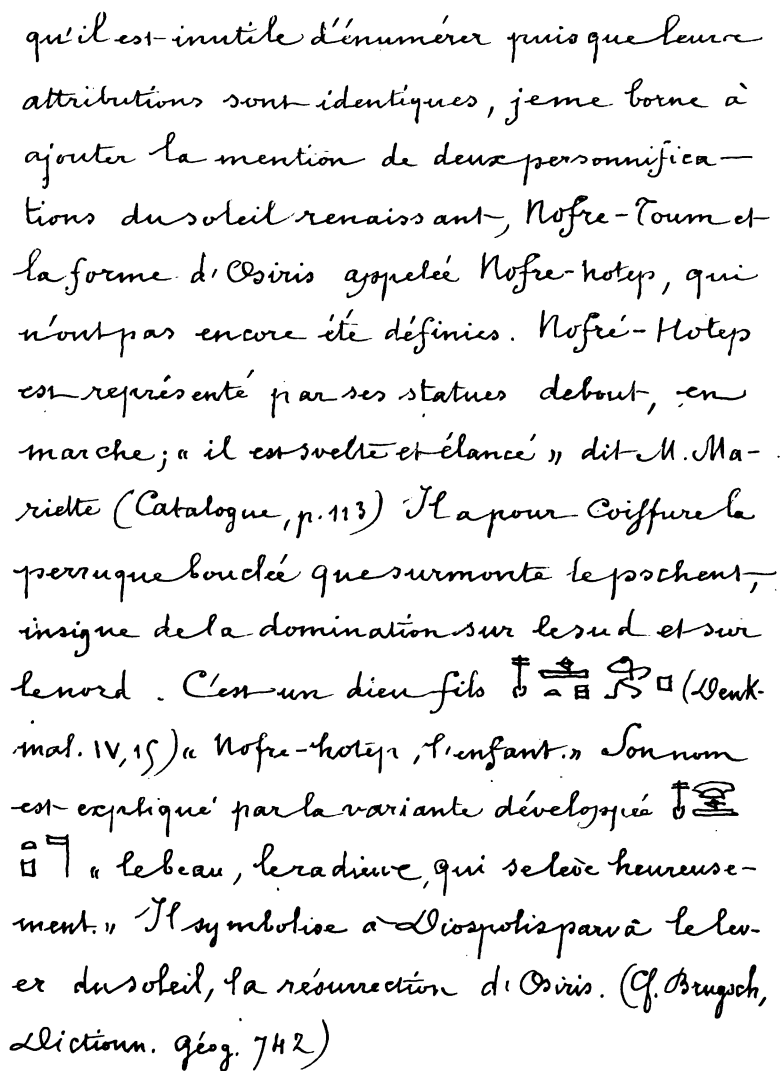 qu'il est inutile d'énumérer puisque leurs
attributions sont identiques, je me borne à
ajouter la mention de deux personnifica-
tions du soleil renaissant, Nofre-Toum et
la forme d'Osiris appelée Nofre-hotep, qui
n'ont pas encore été définies. Nofré-Hotep
est représenté par ses statues debout, en
marche; « il est svelte et élancé » dit M. Ma-
riette (Catalogue, p. 113) Il a pour coiffure la
perruque bouclée que surmonte le pschent,
insigne de la domination sur le sud et sur
le nord. C'est un dieu fils (Denk-
mal. IV, 15) « Nofre-hotep, l'enfant. » Son nom
est expliqué par la variante développée
« le beau, le radieux, qui se lève heureuse-
ment. » Il symbolise à Diospolis parva le lev-
er du soleil, la résurrection d'Osiris. (Cf. Brugsch,
Dictionn. géog. 742)